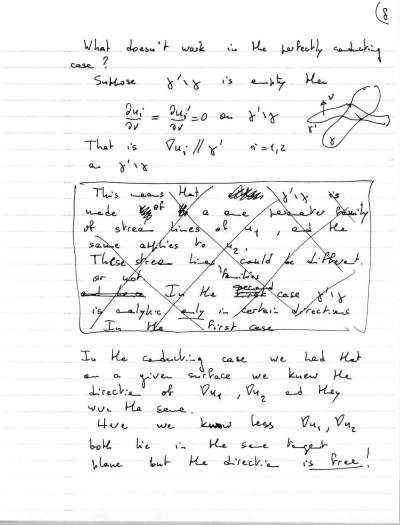 (8
What doesn't work in the perfectly conducting
case?
Suppose γ'\γ is empty then
∂ui/∂ν = ∂ui'/∂ν = 0 on γ'\γ
ν
γ'
γ
That is ∇ui // γ' i=1,2
on γ'\γ
This means that γ'\γ is
made of a one parameter family
of stream lines of u1, and the
same applies to u2.
These stream lines could be different.
or not families
In the second case γ'\γ
is analytic only in certain directions
In the first case
In the conducting case we had that
on a given surface we knew the
direction of ∇u1, ∇u2 and they
were the same.
Here we know less ∇u1, ∇u2
both lie in the same tangent
plane but the direction is free!